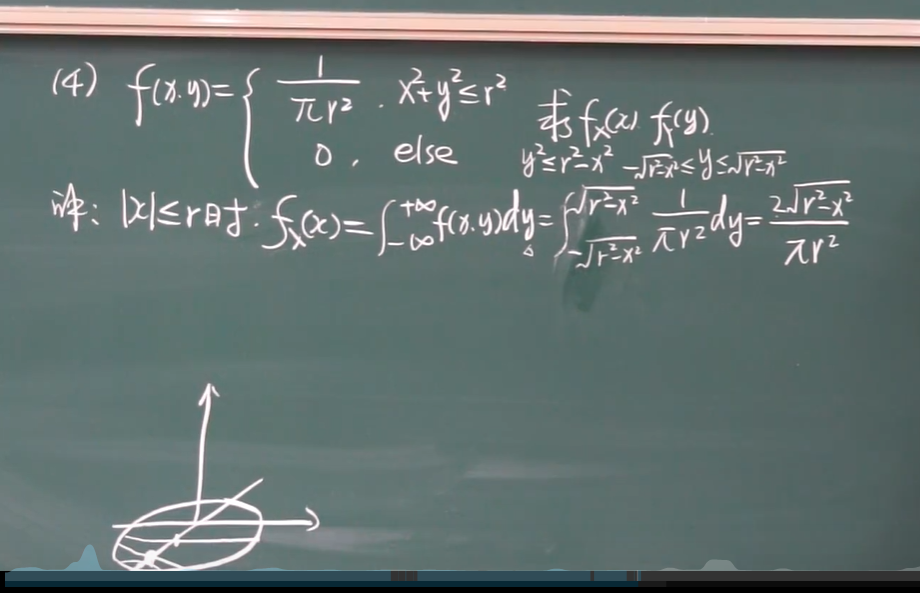 (4) f(x.y)={ 1/πr² . x²+y²≤r²
0 . else
求 f_X(x) f_Y(y).
y²≤r²-x² -√r²-x²≤y≤√r²-x²
解: |x|≤r时. f_X(x)=∫_{-∞}^{+∞}f(x.y)dy=∫_{-√r²-x²}^{√r²-x²} 1/πr² dy= 2√r²-x²/πr²